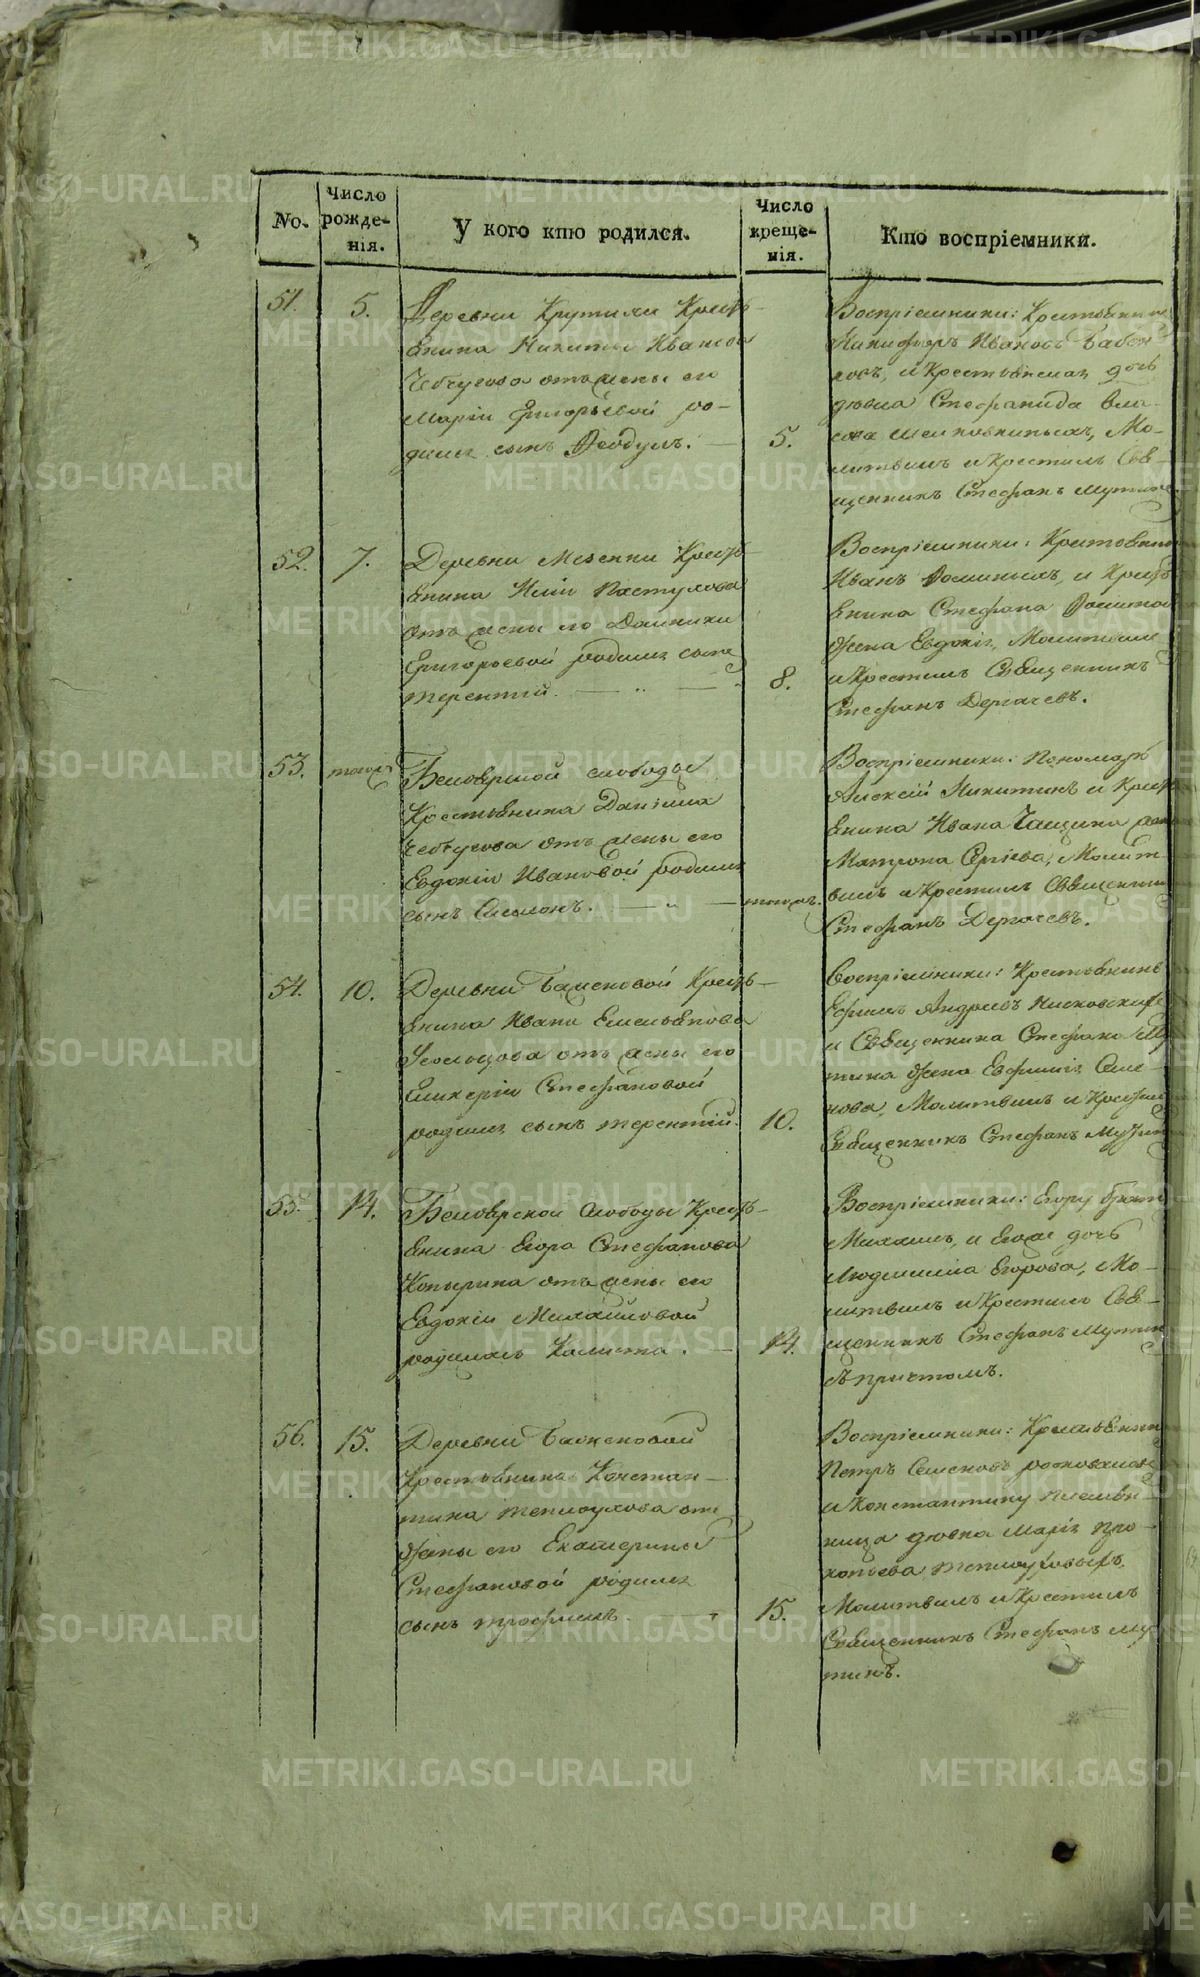 No.
Число рожде-
нія.
У кого кто родился.
Число
креще-
нія.
Кто воспріемники.
51.
5.
Деревни Крутихи Кресть-
янина Никиты Иванова
отъ жены его
Маріи Григорьевой ро-
дился сынъ Ѳеодулъ.
5.
Воспріемники: Крестьянинъ
Никифоръ Ивановъ
и Крестьянская дочь
дѣвка Стефанида Вла-
сова Мо-
литвилъ и Крестилъ Свя-
щенникъ Стефанъ Мутинъ
52.
7.
Деревни Мезенки Кресть-
янина Иліи Пастухова
отъ жены его Домники
Григорьевой родился сынъ
Терентій.
8.
Воспріемники: Крестьянинъ
Иванъ и Кресть-
янина Стефана
жена Евдокія, Молитвилъ
и Крестилъ Священникъ
Стефанъ Дерягевъ.
53.
тогожъ
Белоярской слободы
Крестьянина Даніила
отъ жены его
Евдокіи Ивановой родился
сынъ Симеонъ.
тогожъ.
Воспріемники: Пономарь
Алексій Никитинъ и Кресть-
янина Ивана Гащина
Матрона Сергіева, Молит-
вилъ и Крестилъ Священникъ
Стефанъ Дерягевъ.
54.
10.
Деревни Баженовой Кресть-
янина Ивана Емельянова
отъ жены его
Гликеріи Стефановой
родился сынъ Терентій.
10.
Воспріемники: Крестьянинъ
Ефимъ Андреевъ
и Священника Стефана Му-
тина жена Евфимія Семе-
нова, Молитвилъ и Крестилъ
Священникъ Стефанъ Мутинъ
55.
14.
Белоярской Слободы Кресть-
янина Егора Стефанова
Копырина отъ жены его
Евдокіи Михайловой
родилась Калиста.
14.
Воспріемники: Егору братъ
Михаилъ, и Егора дочь
Людмилла Егорова, Мо-
литвилъ и Крестилъ Свя-
щенникъ Стефанъ Мутинъ
съ причтомъ.
56.
15.
Деревни Баженовой
Крестьянина Констан-
тина Теплоухова отъ
жены его Екатерины
Стефановой родился
сынъ Трофимъ.
15.
Воспріемники: Крестьянинъ
Петръ Семеновъ
и Константину племян-
ница дѣвка Марія Про-
копьева Теплоуховыхъ.
Молитвилъ и Крестилъ
Священникъ Стефанъ Му-
тинъ.